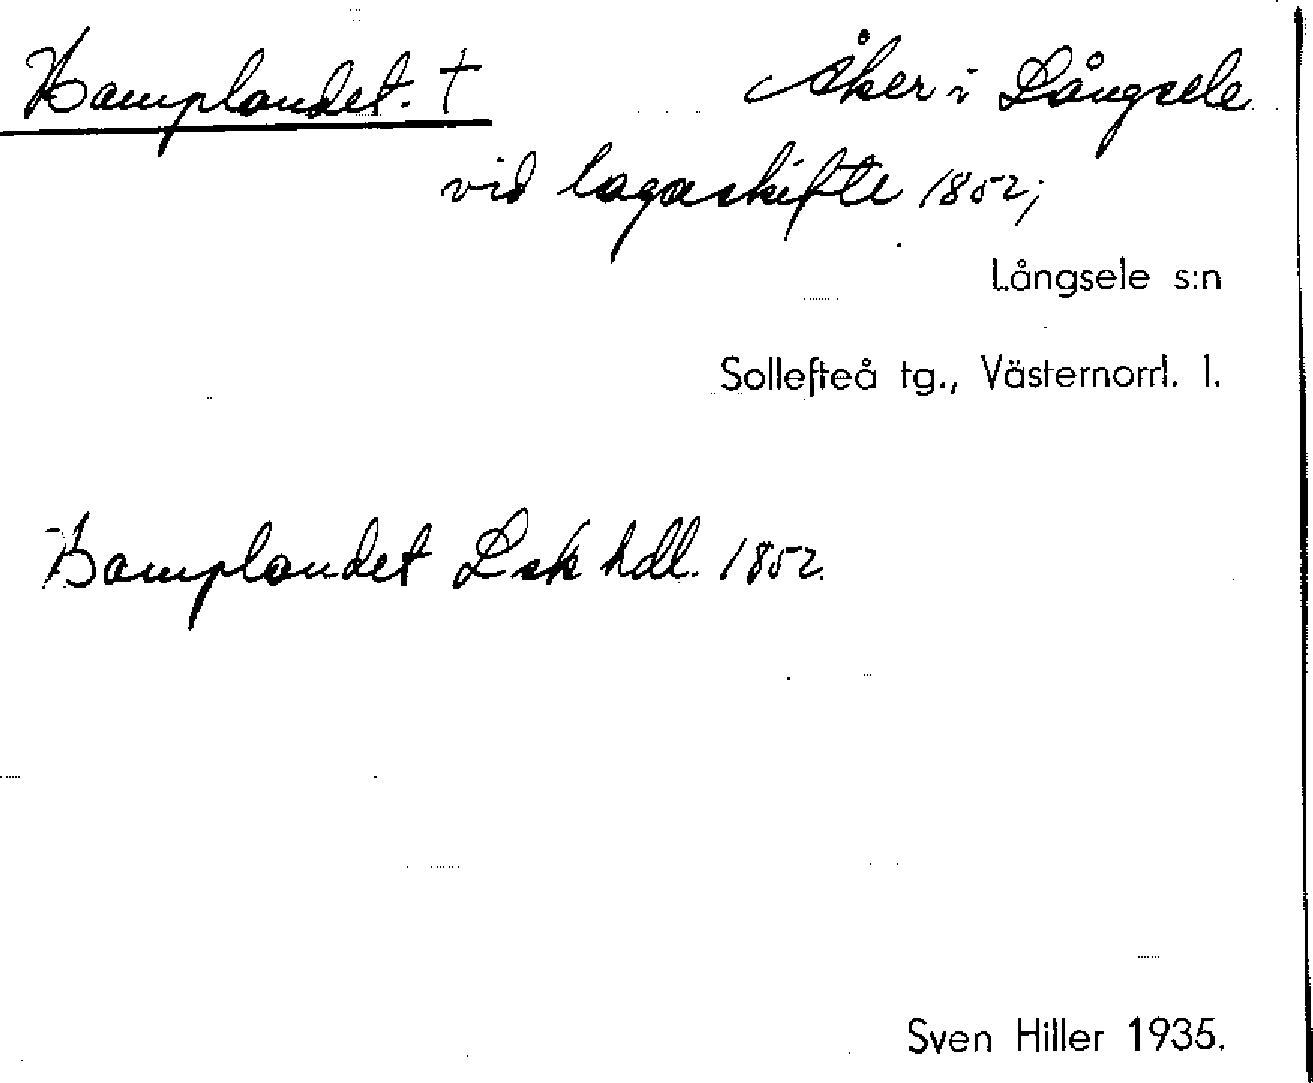 Hamplandet. † Åker i Långsele
vid lagaskifte 1852;
Långsele s:n
Sollefteå tg., Västernorrl. l.
Hamplandet Lsk hdl. 1852.
Sven Hiller 1935.